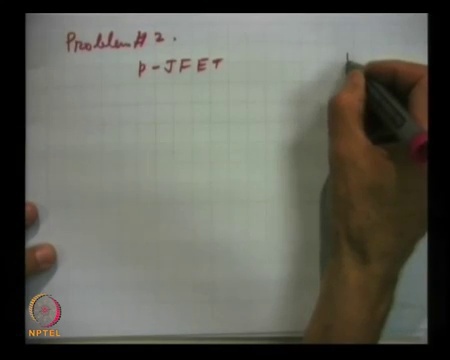 Problem # 2.
p - JFET
NPTEL